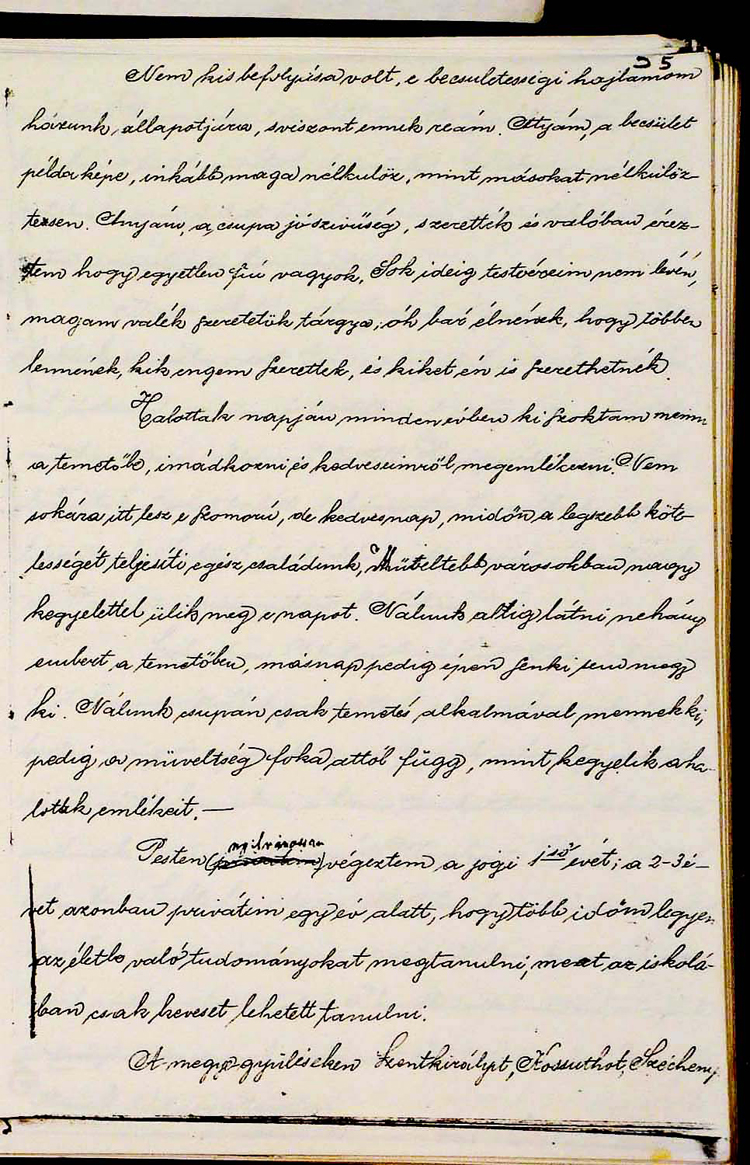 35
Nem kis befolyása volt, e becsületességi hajlamom
házunk állapotjára, s viszont ennek reám. Atyám, a becsület
példaképe, inkább maga nélkülöz, mint másokat nélkülöz-
tessen. Anyám, a csupa jószivüség, szerették és valóban érez-
tem hogy egyetlen fiú vagyok. Sok ideig testvéreim nem lévén,
magam valék szeretetük tárgya; óh bár élnének, hogy többen
lennének, kik engem szerettek, és kiket én is szerethetnék.
Halottak napján minden évben ki szoktam menni
a temetőbe, imádkozni és kedveseimről megemlékezni. Nem
sokára itt lesz e szomorú, de kedves nap, midőn a legszebb köte-
lességét teljesíti egész családunk. Műveltebb városokban nagy
kegyelettel ülik meg e napot. Nálunk alig látni nehány
embert a temetőben, másnap pedig épen senki sem megy
ki. Nálunk csupán csak temetés alkalmával mennek ki,
pedig a müveltség foka attól függ, mint kegyelik a ha-
lottak emlékeit. —
nyilvánosan
Pesten (privatim) végeztem a jogi 1ső évét; a 2-3 é-
vet azonban privátim egy év alatt, hogy több időm legyen
az életbe való tudományokat megtanulni, mert az iskolá-
ban csak keveset lehetett tanulni.
A megye gyüléseken Szentkirályit, Kossuthot, Széchenyi